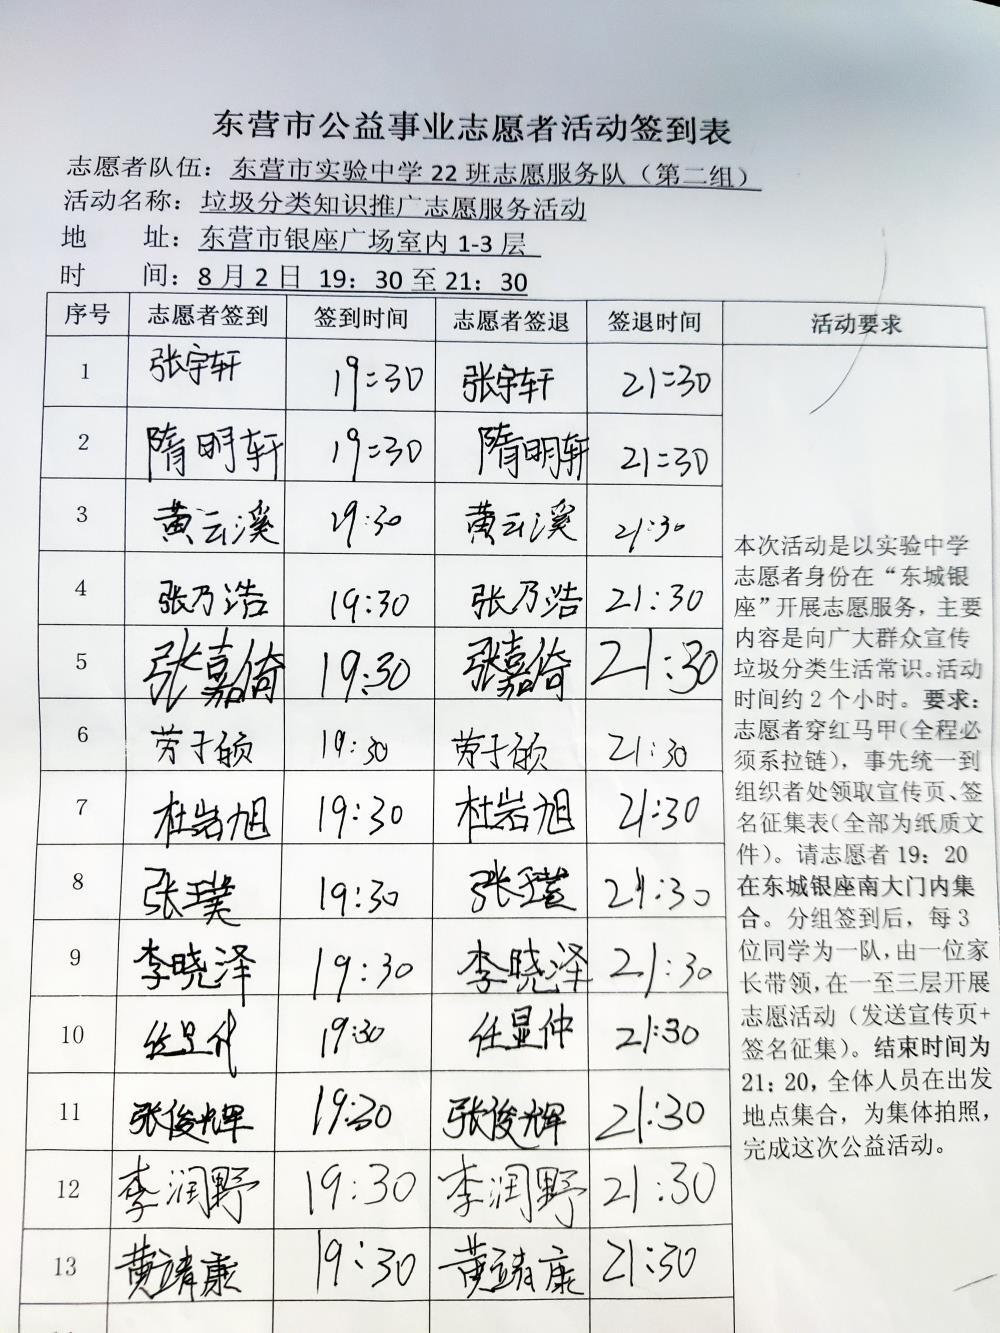 东营市公益事业志愿者活动签到表
志愿者队伍：东营市实验中学 22 班志愿服务队（第二组）
活动名称：垃圾分类知识推广志愿服务活动
地 址：东营市银座广场室内 1-3 层
时 间：8 月 2 日 19：30 至 21：30
序号 志愿者签到 签到时间 志愿者签退 签退时间 活动要求
1 张宇轩 19:30 张宇轩 21:30
2 隋明轩 19:30 隋明轩 21:30
3 黄云溪 19:30 黄云溪 21:30
4 张乃浩 19:30 张乃浩 21:30
5 张嘉倚 19:30 张嘉倚 21:30
6 劳于硕 19:30 劳于硕 21:30
7 杜岩旭 19:30 杜岩旭 21:30
8 张璞 19:30 张璞 21:30
9 李晓泽 19:30 李晓泽 21:30
10 任显仲 19:30 任显仲 21:30
11 张俊辉 19:30 张俊辉 21:30
12 李润野 19:30 李润野 21:30
13 黄靖康 19:30 黄靖康 21:30
本次活动是以实验中学
志愿者身份在“东城银
座”开展志愿服务，主要
内容是向广大群众宣传
垃圾分类生活常识。活动
时间约 2 个小时。要求：
志愿者穿红马甲（全程必
须系拉链），事先统一到
组织者处领取宣传页、签
名征集表（全部为纸质文
件）。请志愿者 19：20
在东城银座南大门内集
合。分组签到后，每 3
位同学为一队，由一位家
长带领，在一至三层开展
志愿活动（发送宣传页+
签名征集）。结束时间为
21：20，全体人员在出发
地点集合，为集体拍照，
完成这次公益活动。